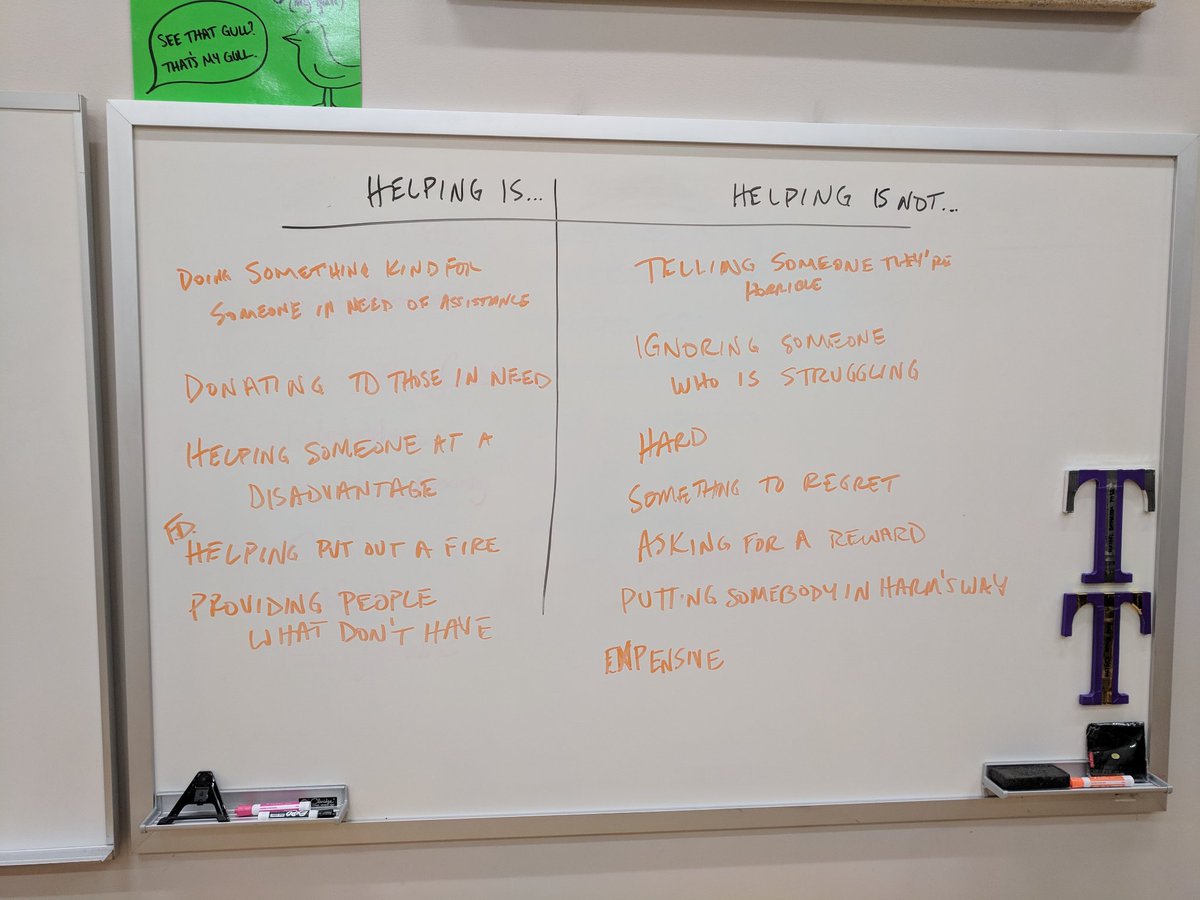 (my gull)
SEE THAT GULL?
THAT'S MY GULL.
HELPING IS...
DOING SOMETHING KIND FOR
SOMEONE IN NEED OF ASSISTANCE
DONATING TO THOSE IN NEED
HELPING SOMEONE AT A
DISADVANTAGE
F.D.
HELPING PUT OUT A FIRE
PROVIDING PEOPLE
WHAT DON'T HAVE
HELPING IS NOT...
TELLING SOMEONE THEY'RE
HORRIBLE
IGNORING SOMEONE
WHO IS STRUGGLING
HARD
SOMETHING TO REGRET
ASKING FOR A REWARD
PUTTING SOMEBODY IN HARM'S WAY
EXPENSIVE
T
T